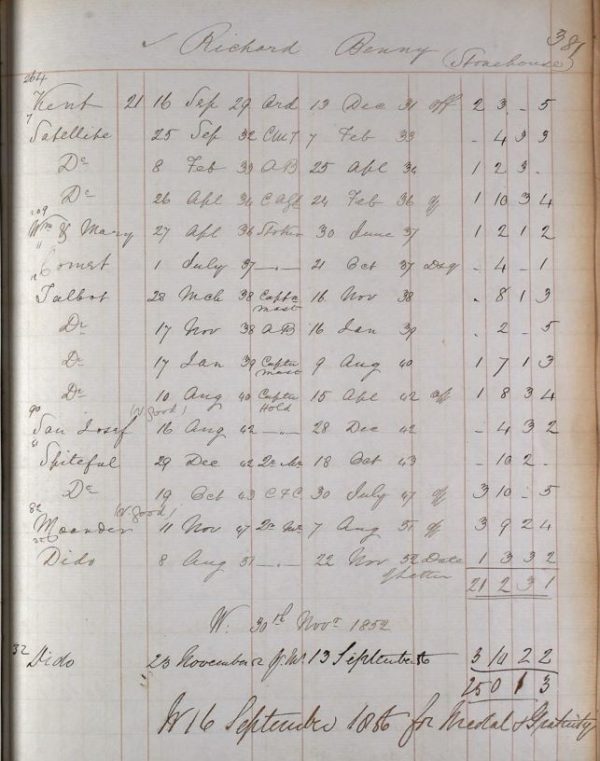 ✓ Richard Benny (Stonehouse) 381
264
Kent 21 16 Sep 29 Ord 13 Dec 31 off 2 3 - 5
7
Satellite 25 Sep 32 7 Feb 33 - 4 3 3
Do 8 Feb 33 AB 25 Apl 34 1 2 3 -
Do 26 Apl 34 24 Feb 36 off 1 10 3 4
209
Wm & Mary 27 Apl 36 Stoker 30 June 37 1 2 1 2
"
Comet 1 July 37 —"— 21 Oct 37 Dsq - 4 - 1
Talbot 28 Mch 38 Capt mast 16 Nov 38 - 8 1 3
Do 17 Nov 38 AB 16 Jan 39 - 2 - 5
Do 17 Jan 39 Captn mast 9 Aug 40 1 7 1 3
Do 10 Aug 40 Captn Hold 15 Apl 42 off 1 8 3 4
90 (V good)
San Josef 16 Aug 42 —"— 28 Dec 42 - 4 3 2
"
Spiteful 29 Dec 42 18 Oct 43 - 10 2 -
Do 19 Oct 43 30 July 47 off 3 10 - 5
82 (V good)
Meander 11 Nov 47 7 Aug 51 off 3 9 2 4
Dido 8 Aug 51 —"— 22 Nov 52 Date of letter 1 3 3 2
21 2 3 1
W. 30th Novr 1852
32
Dido 23 November 52 13 September 56 3 10 2 2
25 0 1 3
W 16 September 1856 for Medal & Gratuity